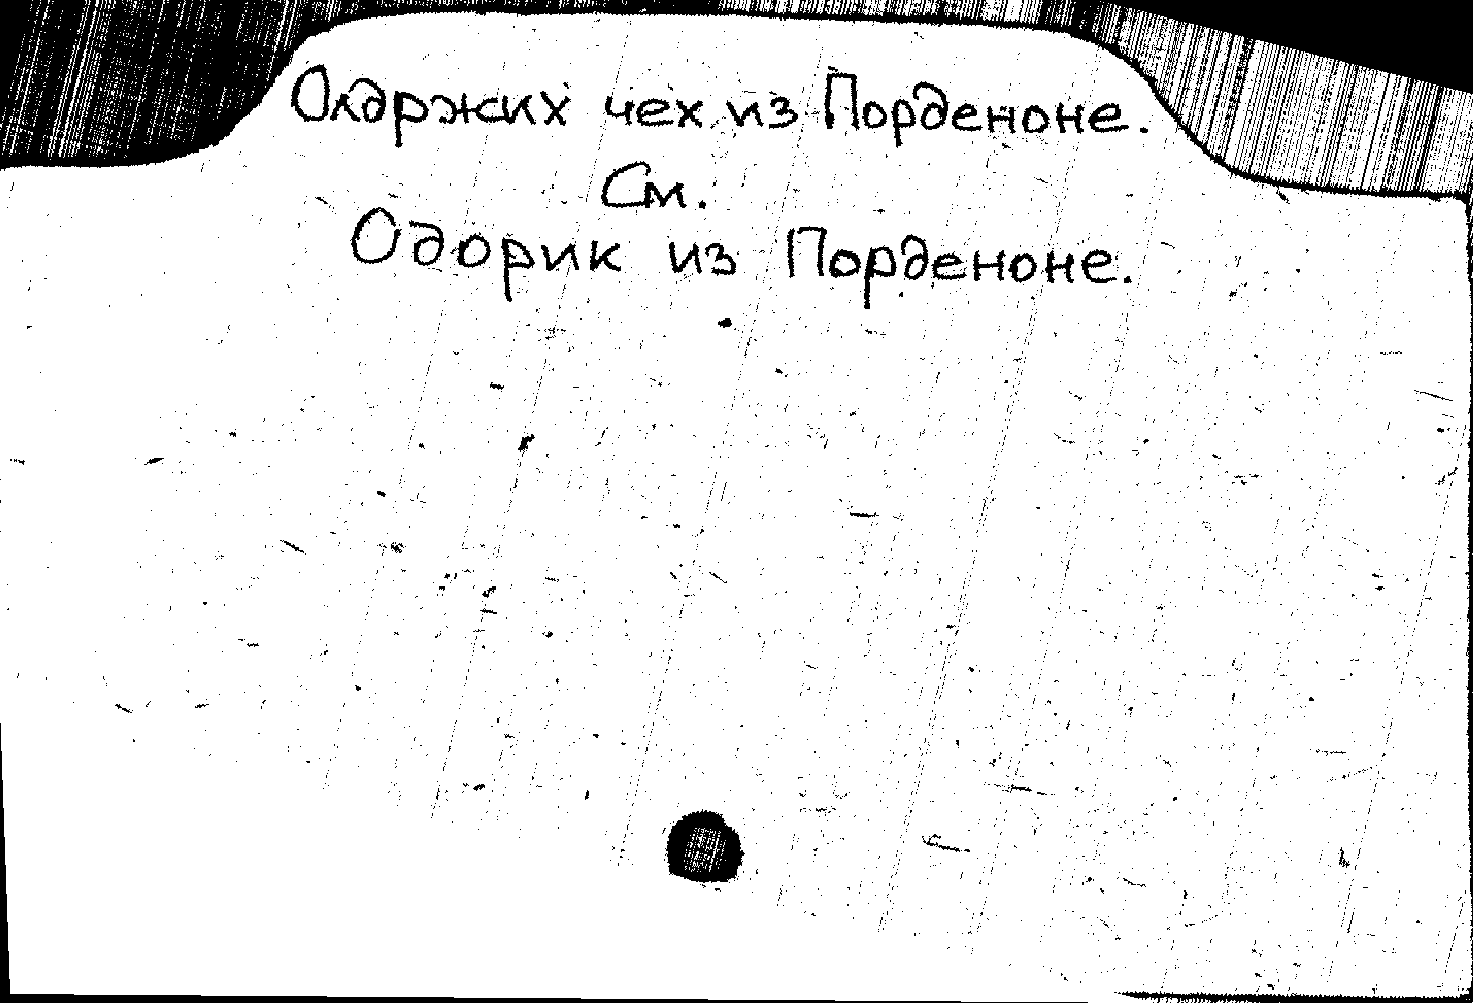 Олдржих чех из Порденоне.
См.
Одорик из Порденоне.